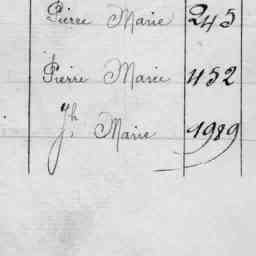 Pierre Marie 245
Pierre Marie 452
Jh Marie 1989